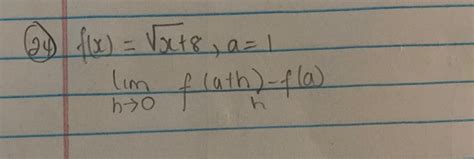 (24) f(x) = √x+8, a=1
lim h→0 f(a+h)-f(a) / h